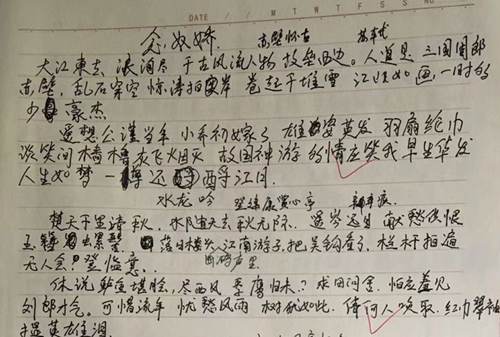 DATE / / M T W T F S S
念奴娇 赤壁怀古 苏轼
大江東去 浪淘尽 千古风流人物 故垒西边。人道是 三国周郎
赤壁,乱石穿空 惊涛拍岸 卷起千堆雪 江山如画,一时多
少豪杰
遥想公谨当年 小乔初嫁了 雄姿英发 羽扇纶巾
谈笑间樯橹灰飞烟灭 故国神游 多情应笑我早生华发
人生如梦 一尊还酹江月.
水龙吟 登建康赏心亭 辛弃疾
楚天千里清秋,水随天去秋无际。遥岑远目 献愁供恨
玉簪螺髻 落日楼头 江南游子,把吴钩看了 栏杆拍遍
断鸿声里
无人会?登临意.
休说鲈鱼堪脍,尽西风 季鹰归未?求田问舍 怕应羞见
刘郎才气。可惜流年 忧愁风雨 树犹如此,倩何人唤取 红巾翠袖
揾英雄泪